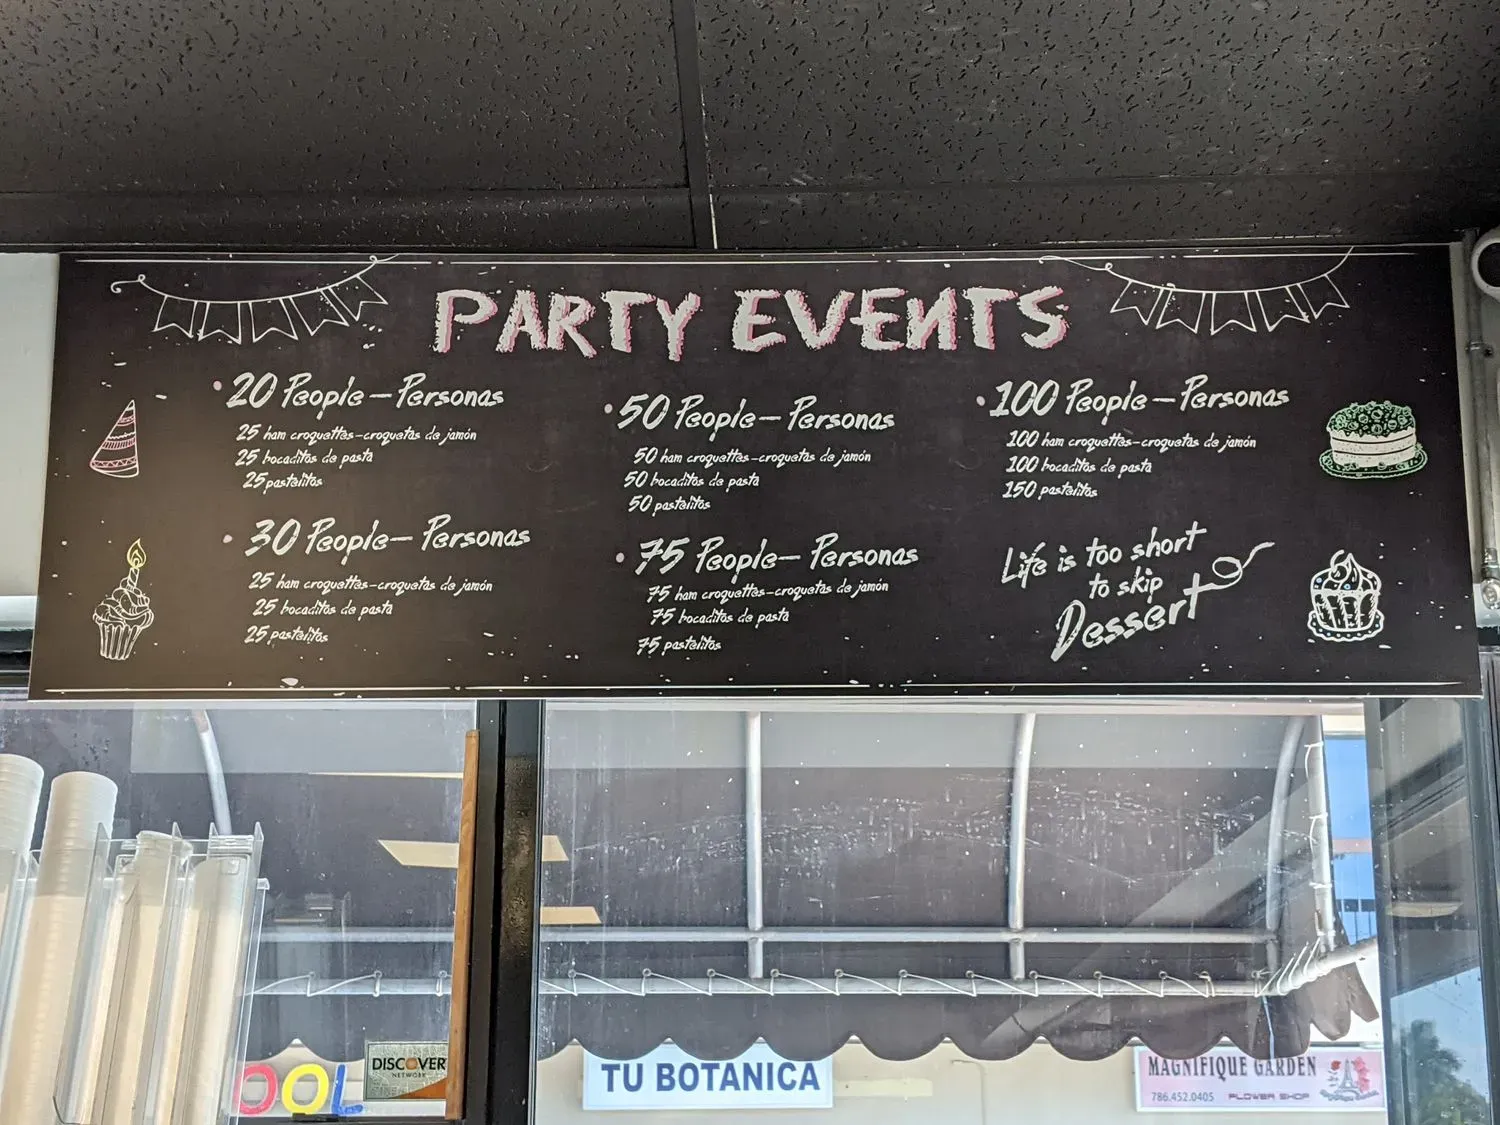 PARTY EVENTS
• 20 People - Personas
25 ham croquettes-croquetas de jamón
25 bocaditos de pasta
25 pastelitos
• 30 People - Personas
25 ham croquettes-croquetas de jamón
25 bocaditos de pasta
25 pastelitos
• 50 People - Personas
50 ham croquettes-croquetas de jamón
50 bocaditos de pasta
50 pastelitos
• 75 People - Personas
75 ham croquettes-croquetas de jamón
75 bocaditos de pasta
75 pastelitos
• 100 People - Personas
100 ham croquettes-croquetas de jamón
100 bocaditos de pasta
150 pastelitos
Life is too short
to skip
Dessert
OOL
DISCOVER
NETWORK
TU BOTANICA
MAGNIFIQUE GARDEN
786.452.0405 FLOWER SHOP